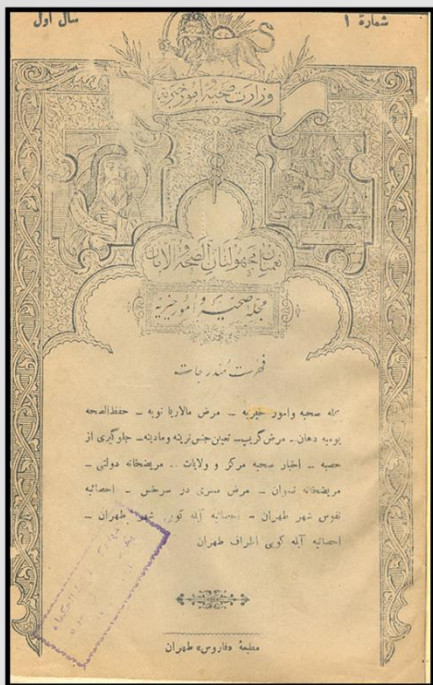 شمارهٔ ۱
سال اول
وزارت صحیه و امور خیریه
نعمتان مجهولتان الصحة والامان
مجله صحیه و امور خیریه
فهرست مندرجات
صحیه وامور خیریه – مرض مالاریا نوبه – حفظ‌الصحه
یومیه دهان – مرض گریپ – تعیین جنس نرینه ومادینه – جلوگیری از
حصبه – اخبار صحیه مرکز و ولایات – مریضخانه دولتی –
مریضخانه نسوان – مرض مسری در سرخس – احصائیه
نفوس شهر طهران – احصائیه آبله کوبی شهر طهران –
احصائیه آبله کوبی اطراف طهران
مطبعهٔ «فاروس» طهران